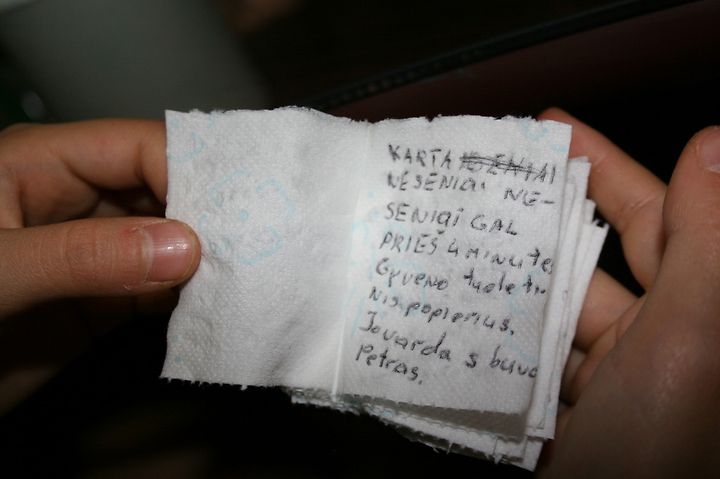 KARTĄ ISENIAI
NESENIAI NE-
SENIAI GAL
PRIEŠ 4 MINUTES
Gyveno tualeti-
nis popierius.
Jo vardas buvo
Petras.